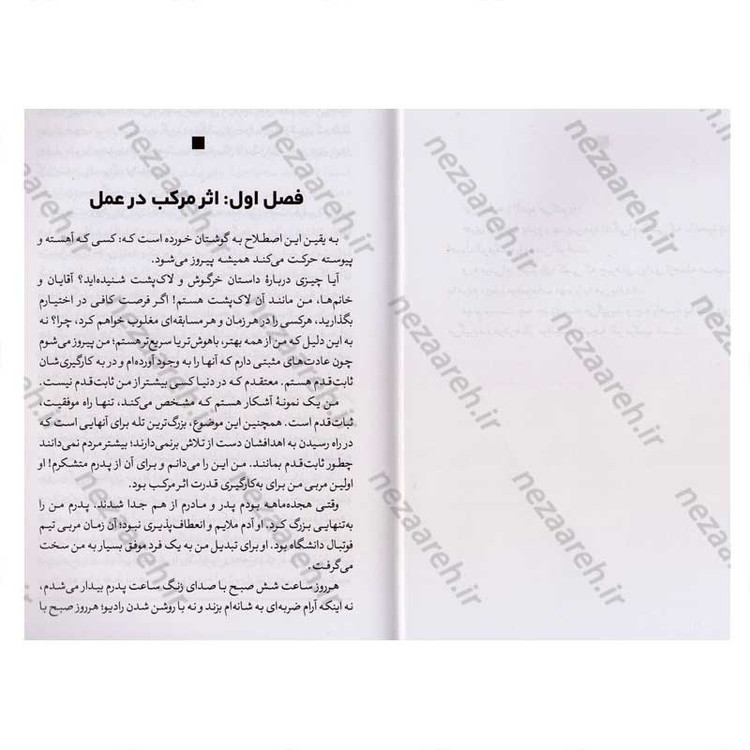 فصل اول: اثر مرکب در عمل
به یقین این اصطلاح به گوشتان خورده است که: کسی که آهسته و
پیوسته حرکت می‌کند همیشه پیروز می‌شود.
آیا چیزی دربارهٔ داستان خرگوش و لاک‌پشت شنیده‌اید؟ آقایان و
خانم‌ها، من مانند آن لاک‌پشت هستم! اگر فرصت کافی در اختیارم
بگذارید، هرکسی را در هر زمان و هر مسابقه‌ای مغلوب خواهم کرد، چرا؟ نه
به این دلیل که من از همه بهتر، باهوش‌تر یا سریع‌تر هستم؛ من پیروز می‌شوم
چون عادت‌های مثبتی دارم که آنها را به وجود آورده‌ام و در به کارگیری‌شان
ثابت‌قدم هستم. معتقدم که در دنیا کسی بیشتر از من ثابت‌قدم نیست.
من یک نمونهٔ آشکار هستم که مشخص می‌کند، تنها راه موفقیت،
ثبات قدم است. همچنین این موضوع، بزرگ‌ترین تله برای آنهایی است که
در راه رسیدن به اهدافشان دست از تلاش برنمی‌دارند؛ بیشتر مردم نمی‌دانند
چطور ثابت‌قدم بمانند. من این را می‌دانم و برای آن از پدرم متشکرم! او
اولین مربی من برای به‌کارگیری قدرت اثر مرکب بود.
وقتی هجده‌ماهه بودم پدر و مادرم از هم جدا شدند. پدرم من را
به‌تنهایی بزرگ کرد. او آدم ملایم و انعطاف‌پذیری نبود؛ آن زمان مربی تیم
فوتبال دانشگاه بود. او برای تبدیل من به یک فرد موفق بسیار به من سخت
می‌گرفت.
هر روز ساعت شش صبح با صدای زنگ ساعت پدرم بیدار می‌شدم،
نه اینکه آرام ضربه‌ای به شانه‌ام بزند و نه با روشن شدن رادیو؛ هر روز صبح با
nezaareh.ir
nezaareh.ir
nezaareh.ir
nezaareh.ir
nezaareh.ir
nezaareh.ir
nezaareh.ir
nezaareh.ir